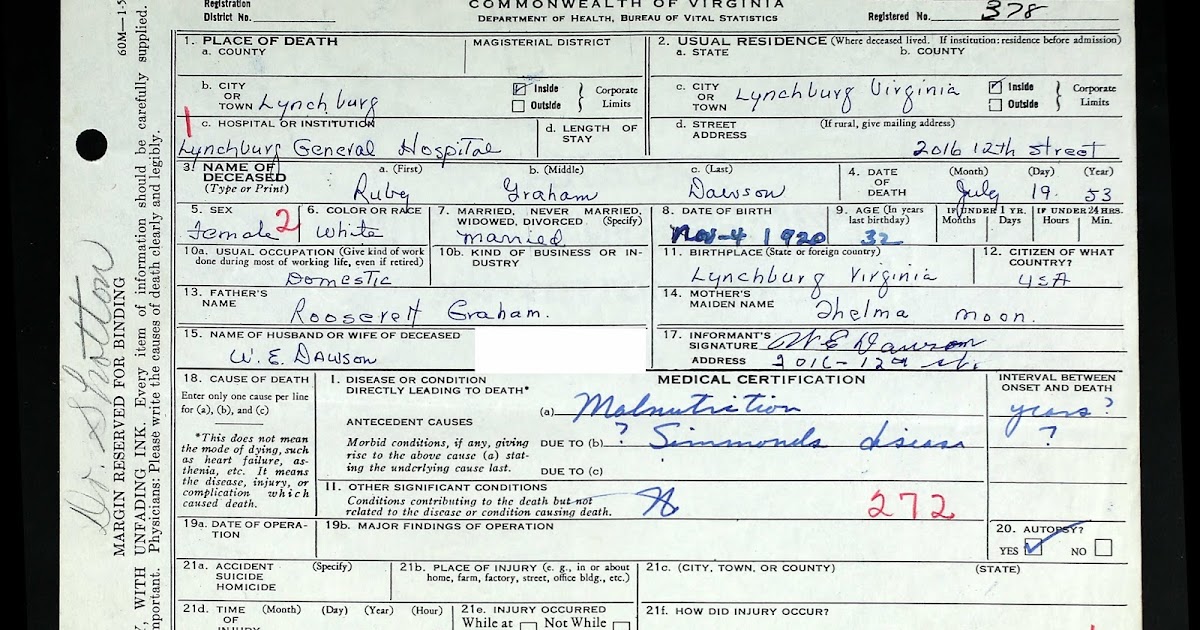 COMMONWEALTH OF VIRGINIA
Registration
District No.
DEPARTMENT OF HEALTH, BUREAU OF VITAL STATISTICS
Registered No. 378
1. PLACE OF DEATH
a. COUNTY
MAGISTERIAL DISTRICT
2. USUAL RESIDENCE (Where deceased lived. If institution: residence before admission)
a. STATE
b. COUNTY
b. CITY OR TOWN Lynchburg
Inside
Outside
Corporate Limits
c. CITY OR TOWN Lynchburg Virginia
Inside
Outside
Corporate Limits
c. HOSPITAL OR INSTITUTION
Lynchburg General Hospital
d. LENGTH OF STAY
d. STREET ADDRESS
(If rural, give mailing address)
2016 12th Street
3. NAME OF DECEASED
(Type or Print)
a. (First)
Ruby
b. (Middle)
Graham
c. (Last)
Dawson
4. DATE OF DEATH
(Month) (Day) (Year)
July 19. 53
5. SEX
Female 2
6. COLOR OR RACE
White
7. MARRIED, NEVER MARRIED, WIDOWED, DIVORCED (Specify)
married
8. DATE OF BIRTH
Nov-4 1920
9. AGE (In years last birthday)
32
IF UNDER 1 YR.
Months Days
IF UNDER 24 HRS.
Hours Min.
10a. USUAL OCCUPATION (Give kind of work done during most of working life, even if retired)
Domestic
10b. KIND OF BUSINESS OR INDUSTRY
11. BIRTHPLACE (State or foreign country)
Lynchburg Virginia
12. CITIZEN OF WHAT COUNTRY?
USA
13. FATHER'S NAME
Rooserett Graham.
14. MOTHER'S MAIDEN NAME
Thelma Moon.
15. NAME OF HUSBAND OR WIFE OF DECEASED
W. E. Dawson
17. INFORMANT'S SIGNATURE W E Dawson
ADDRESS 2016-12th St.
18. CAUSE OF DEATH
Enter only one cause per line for (a), (b), and (c)
*This does not mean the mode of dying, such as heart failure, asthenia, etc. It means the disease, injury, or complication which caused death.
MEDICAL CERTIFICATION
INTERVAL BETWEEN ONSET AND DEATH
I. DISEASE OR CONDITION DIRECTLY LEADING TO DEATH*
(a) Malnutrition
years?
ANTECEDENT CAUSES
Morbid conditions, if any, giving rise to the above cause (a) stating the underlying cause last.
DUE TO (b) ? Simmonds disease
?
DUE TO (c)
II. OTHER SIGNIFICANT CONDITIONS
Conditions contributing to the death but not related to the disease or condition causing death.
272
19a. DATE OF OPERATION
19b. MAJOR FINDINGS OF OPERATION
20. AUTOPSY?
YES NO
21a. ACCIDENT SUICIDE HOMICIDE
(Specify)
21b. PLACE OF INJURY (e. g., in or about home, farm, factory, street, office bldg., etc.)
21c. (CITY, TOWN, OR COUNTY)
(STATE)
21d. TIME OF INJURY
(Month) (Day) (Year) (Hour)
21e. INJURY OCCURRED
While at Not While
21f. HOW DID INJURY OCCUR?
MARGIN RESERVED FOR BINDING
WITH UNFADING INK. Every item of information should be carefully supplied.
important. Physicians: Please write the causes of death clearly and legibly.
60M—1-5